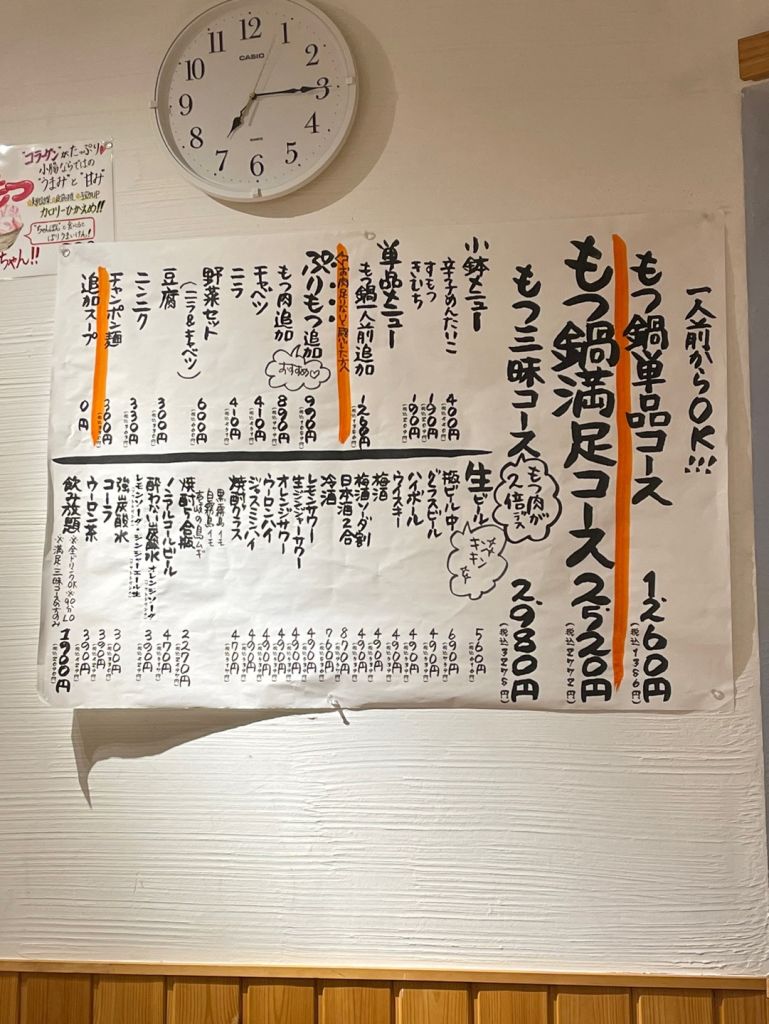 12
1
2
3
4
5
6
7
8
9
10
11
CASIO
"コラーゲン"がたっぷり♥
小腸ならではの
"うまみ"と"甘み"
カロリーひかえめ!!
"ちゃんぽん"と食べると
ばりうまいけん!
ちゃん!!
一人前からOK!!!
もつ鍋単品コース 1,260円
(税込1386円)
もつ鍋満足コース 2,520円
(税込2772円)
もつ三昧コース 2,980円
(税込3278円)
もつ肉が
2倍デス
小鉢メニュー
辛子めんたいこ 400円
すもつ 190円
きむち 190円
単品メニュー
もつ鍋一人前追加 1260円
お肉足りないと感じした方へ
ぷりもつ追加 990円
もつ肉追加 890円
おすすめ♡
キャベツ 410円
ニラ 410円
野菜セット 600円
(ニラ&キャベツ)
豆腐 300円
ニンニク 330円
チャンポン麺 300円
追加スープ 0円
生ビール 560円
キンキン
瓶ビール中 690円
グラスビール 410円
ハイボール 490円
ウイスキー 490円
梅酒 490円
梅酒ソーダ割 490円
日本酒2合 870円
冷酒 760円
レモンサワー 490円
生ジンジャーサワー 490円
オレンジサワー 490円
ウーロンハイ 490円
ジャスミンハイ 490円
焼酎グラス 470円
黒霧島イモ
白霧島イモ
壱岐の島ムギ
焼酎5合瓶 2270円
ノンアルコールビール 470円
酔わない炭酸水 390円
オレンジソーダ
レモンソーダ・ジンジャーエール生
強炭酸水 300円
コーラ 390円
ウーロン茶 390円
飲み放題 1,900円
※全ドリンクOK ※90分LO
※満足、三昧コースの方のみ